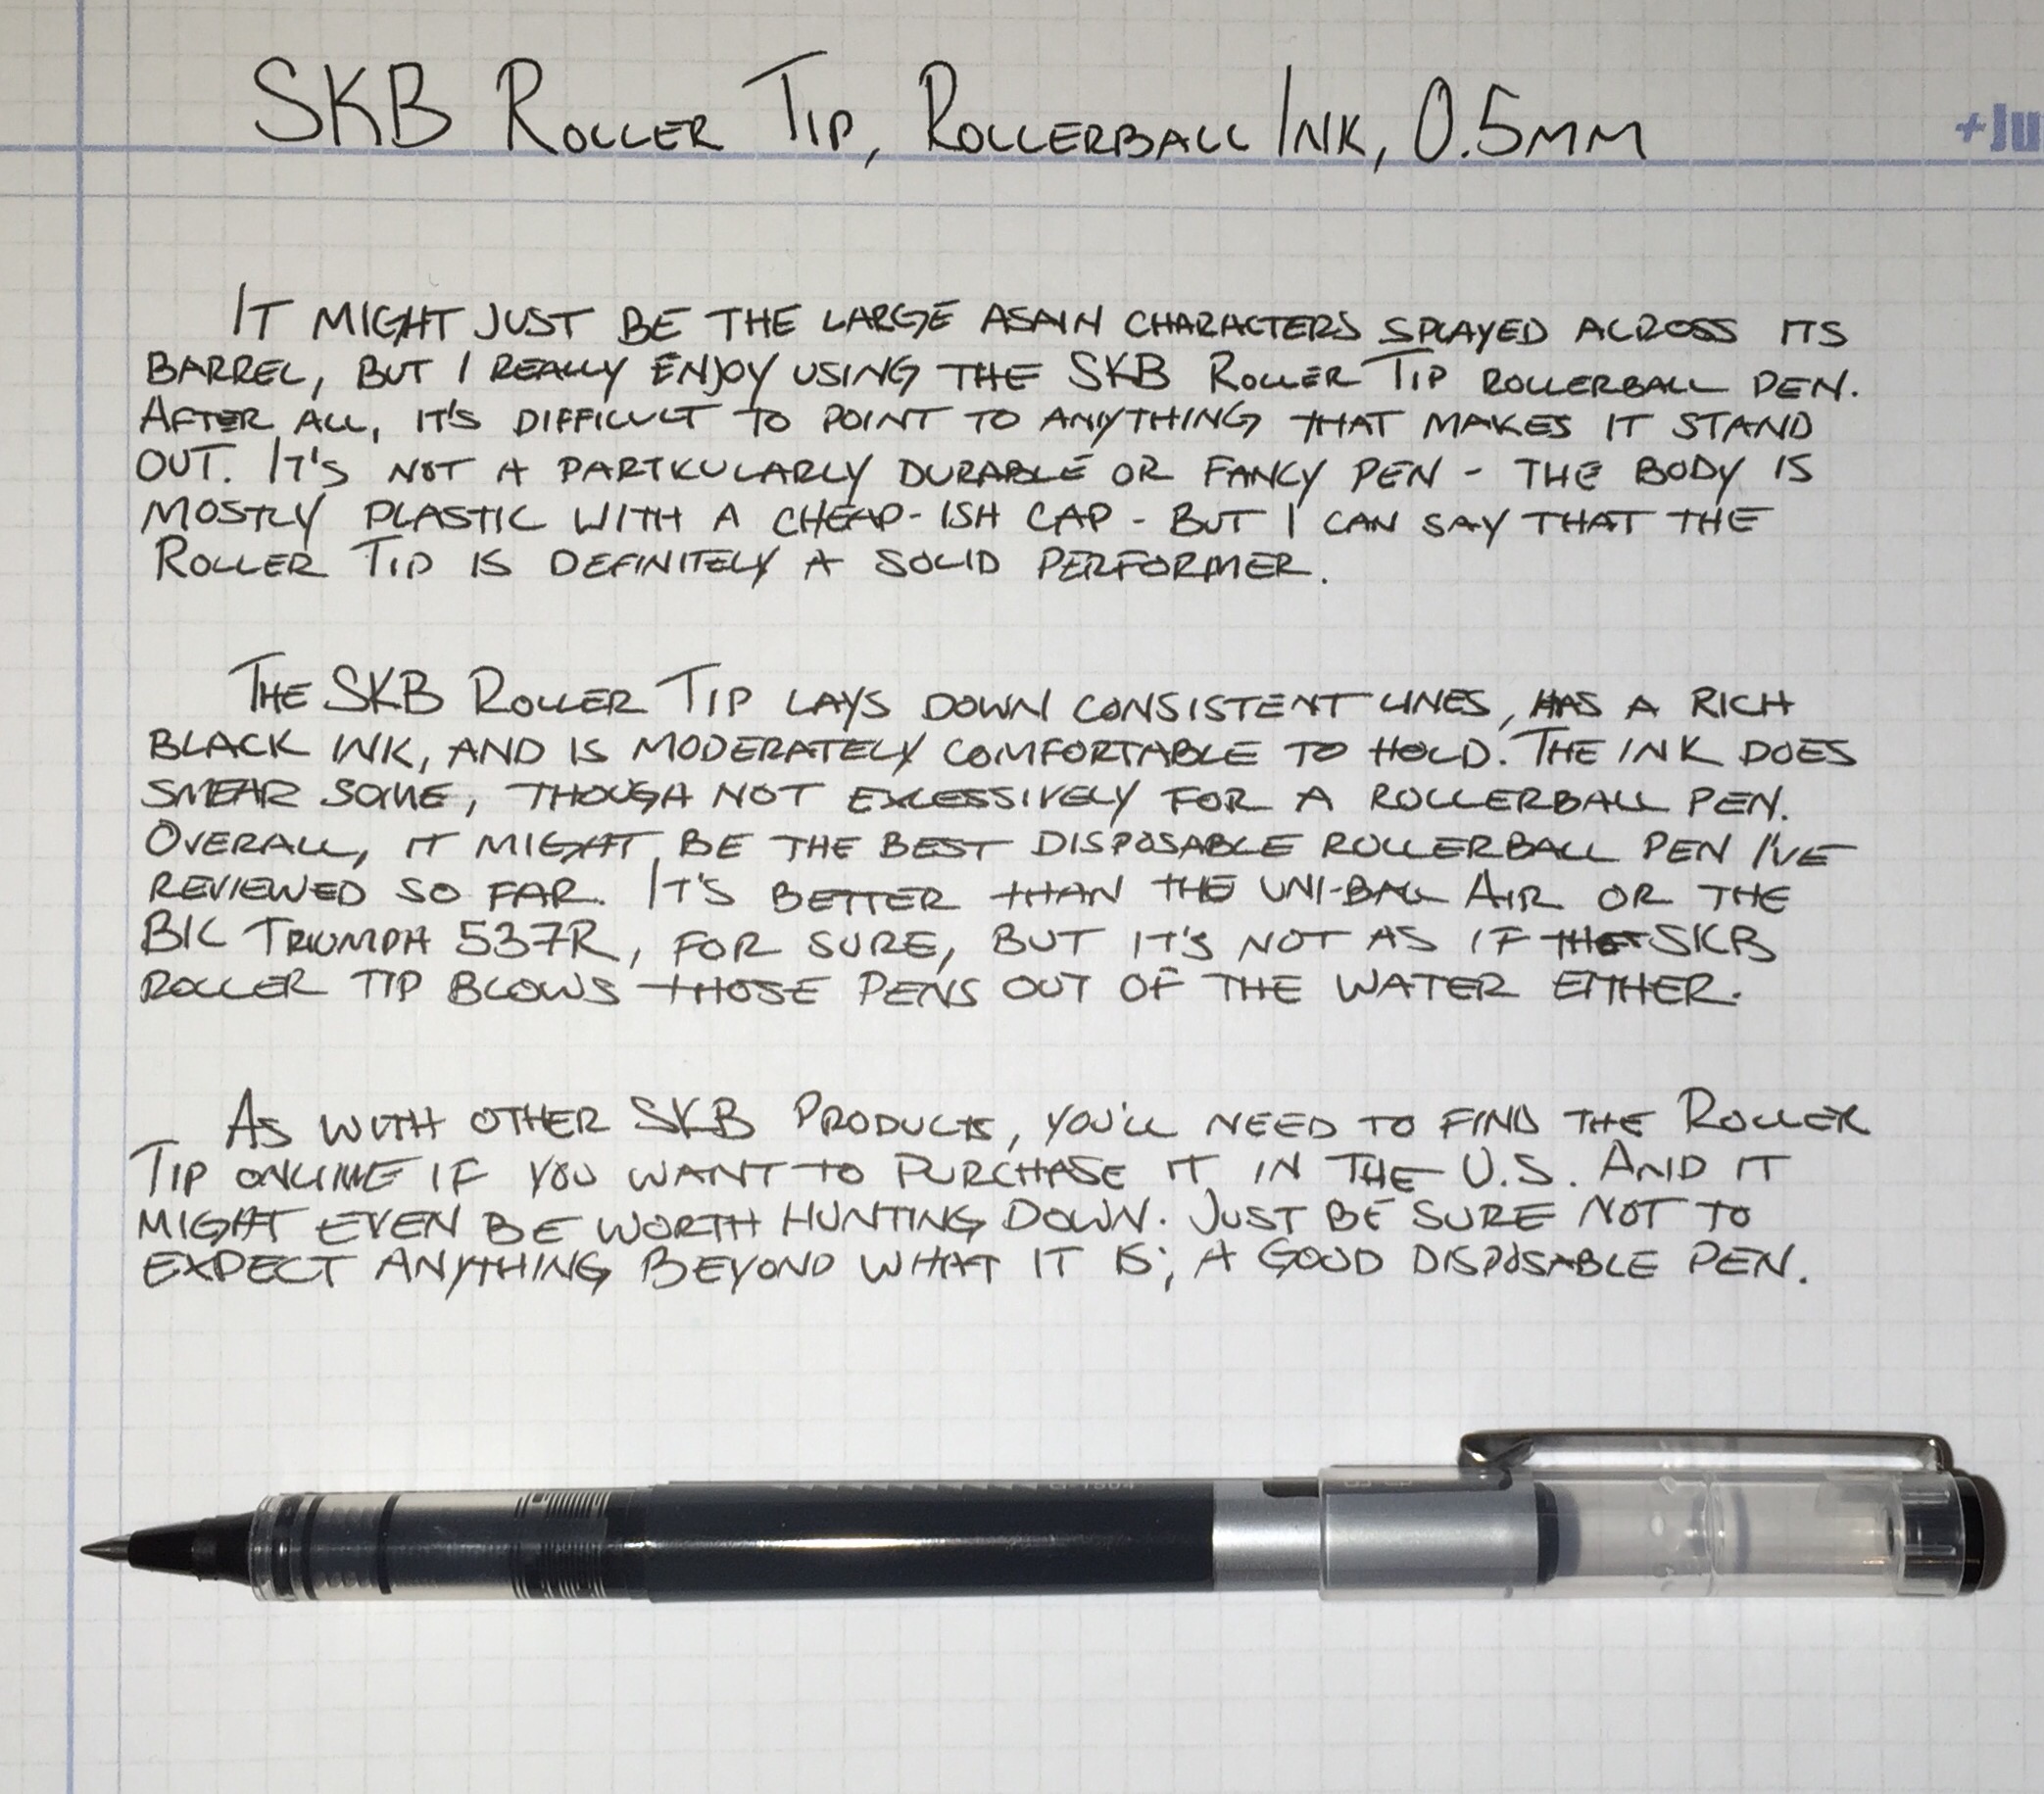 SKB ROLLER TIP, ROLLERBALL INK, 0.5MM
+Ju
IT MIGHT JUST BE THE LARGE ASAIN CHARACTERS SPLAYED ACROSS ITS
BARREL, BUT I REALLY ENJOY USING THE SKB ROLLER TIP ROLLERBALL PEN.
AFTER ALL, IT'S DIFFICULT TO POINT TO ANYTHING THAT MAKES IT STAND
OUT. IT'S NOT A PARTICULARLY DURABLE OR FANCY PEN - THE BODY IS
MOSTLY PLASTIC WITH A CHEAP-ISH CAP - BUT I CAN SAY THAT THE
ROLLER TIP IS DEFINITELY A SOLID PERFORMER.
THE SKB ROLLER TIP LAYS DOWN CONSISTENT LINES, HAS A RICH
BLACK INK, AND IS MODERATELY COMFORTABLE TO HOLD. THE INK DOES
SMEAR SOME, THOUGH NOT EXCESSIVELY FOR A ROLLERBALL PEN.
OVERALL, IT MIGHT BE THE BEST DISPOSABLE ROLLERBALL PEN I'VE
REVIEWED SO FAR. IT'S BETTER THAN THE UNI-BALL AIR OR THE
BIC TRIUMPH 537R, FOR SURE, BUT IT'S NOT AS IF THE SKB
ROLLER TIP BLOWS THOSE PENS OUT OF THE WATER EITHER.
AS WITH OTHER SKB PRODUCTS, YOU'LL NEED TO FIND THE ROLLER
TIP ONLINE IF YOU WANT TO PURCHASE IT IN THE U.S. AND IT
MIGHT EVEN BE WORTH HUNTING DOWN. JUST BE SURE NOT TO
EXPECT ANYTHING BEYOND WHAT IT IS; A GOOD DISPOSABLE PEN.